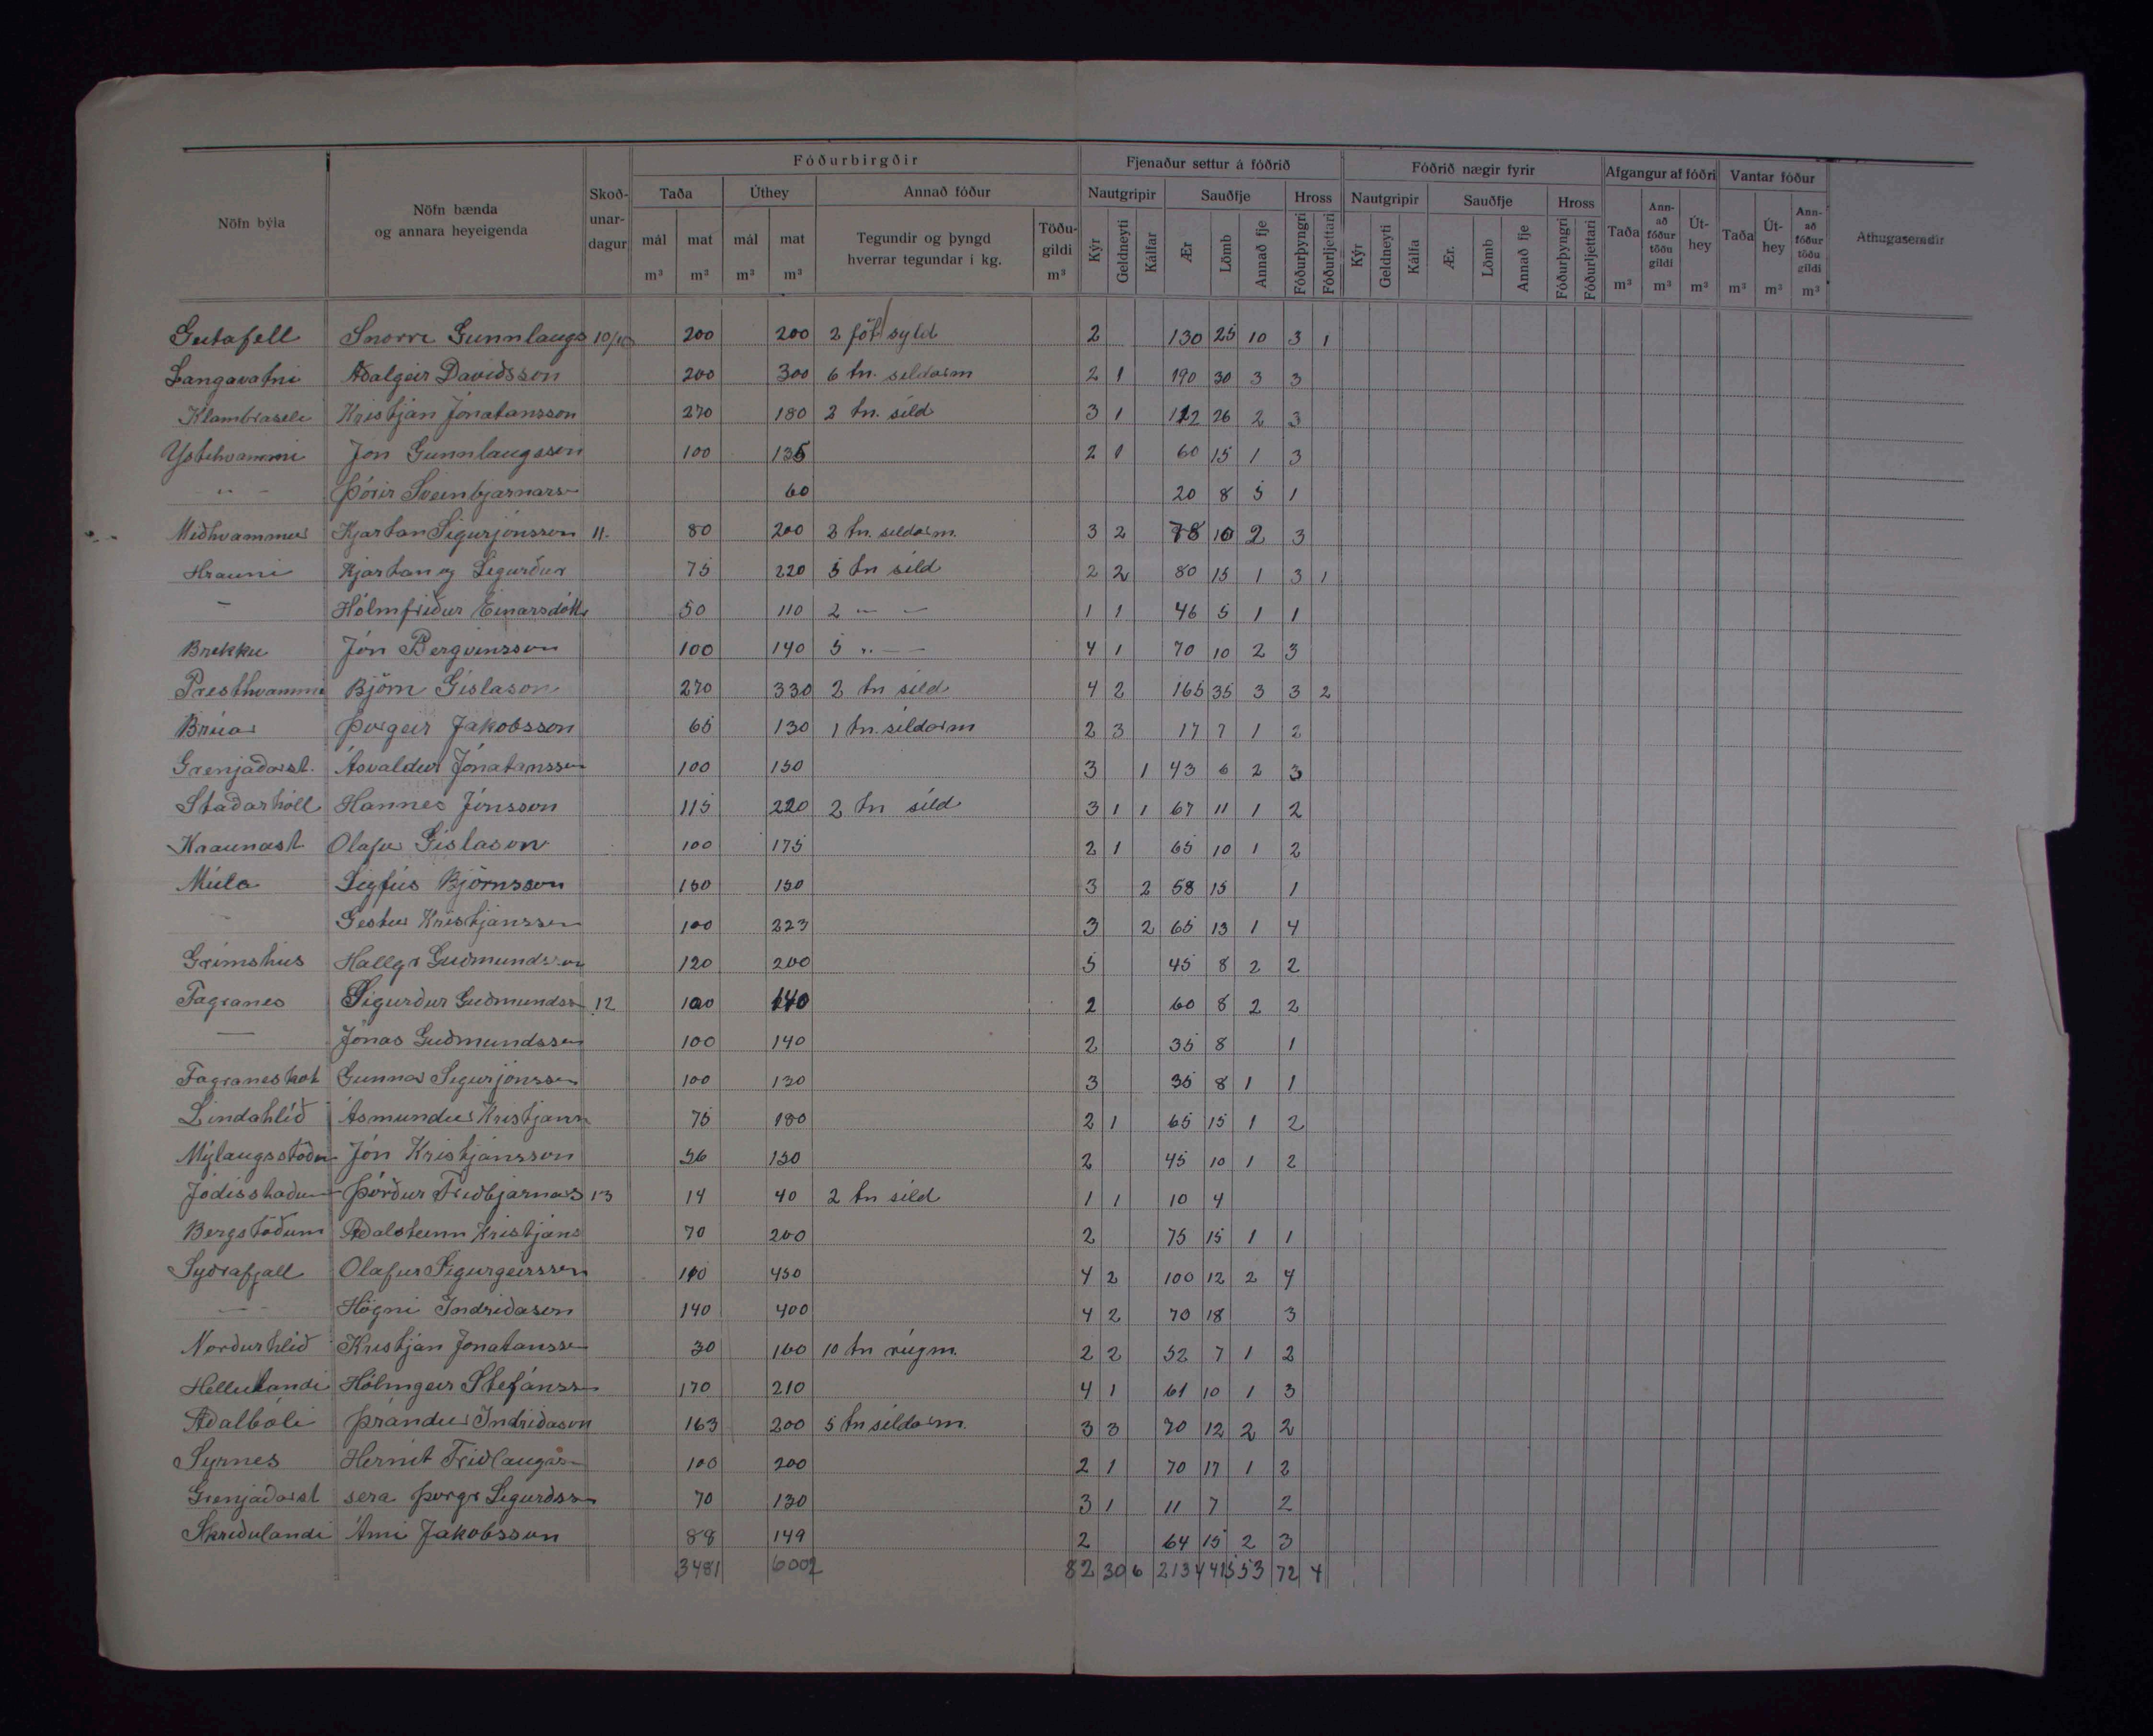 Fóðurbirgðir Fjenaður settur á fóðrið Fóðrið nægir fyrir Afgangur af fóðri Vantar fóður
Nöfn býla Nöfn bænda og annara heyeigenda Skoð-unar-dagur Taða Úthey Annað fóður Nautgripir Sauðfje Hross Nautgripir Sauðfje Hross Athugasemdir
mál m³ mat m³ mál m³ mat m³ Tegundir og þyngd hverrar tegundar í kg. Töðu-gildi m³ Kýr Geldneyti Kálfar Ær Lömb Annað fje Fóðurþyngri Fóðurljettari Kýr Geldneyti Kálfa Ær. Lömb Annað fje Fóðurþyngri Fóðurljettari Taða m³ Ann-að fóður töðu gildi m³ Út-hey m³ Taða m³ Út-hey m³ Ann-að fóður töðu gildi m³
Geitafell Snorri Gunnlaugs 200 200 2 föt syld 2 130 25 10 3 1
Langavatni Aðalgeir Davíðsson 200 300 6 tn. síldarm 2 1 190 30 3 3
Klambraseli Kristján Jónatansson 270 180 2 tn. síld 3 1 112 26 2 3
Ystahvammi Jón Gunnlaugsson 100 135 2 1 60 15 1 3
" - Þórir Sveinbjarnars 60 20 8 5 1
Miðhvammur Kjartan Sigurjónsson 11. 80 200 3 tn. síldarm. 3 2 78 10 2 3
Hrauni Kjartan og Sigurður 75 220 5 tn síld 2 2 80 15 1 3 1
- Hólmfríður Einarsdóttr 50 110 2 - - 1 1 46 5 1 1
Brekku Jón Bergvinsson 100 140 5 " - 4 1 70 10 2 3
Presthvammi Björn Gíslason 270 330 2 tn síld 4 2 165 35 3 3 2
Brúar Þorgeir Jakobsson 65 130 1 tn. síldarm 2 3 17 7 1 2
Grenjaðarst. Ásvaldur Jónatansson 100 150 3 1 43 6 2 3
Staðarhóll Hannes Jónsson 115 220 2 tn síld 3 1 1 67 11 1 2
Kraunast Olafur Gíslason 100 175 2 1 65 10 1 2
Múla Sigfús Björnsson 150 150 3 2 58 15 1
- Gestur Kristjánsson 100 223 3 2 65 13 1 4
Grímshús Hallgr Guðmundsson 120 200 5 45 8 2 2
Fagranes Sigurður Guðmundss 12 100 140 2 60 8 2 2
— Jónas Guðmundsson 100 140 2 35 8 1
Fagraneskot Gunnar Sigurjónsson 100 130 3 35 8 1 1
Lindahlíð Ásmundur Kristjánss 75 180 2 1 65 15 1 2
Mýlaugsstöðum Jón Kristjánsson 36 150 2 45 10 1 2
Jódísstaðum Þórður Friðbjarnars 13 14 40 2 tn síld 1 1 10 4
Bergstöðum Aðalsteinn Kristjáns 70 200 2 75 15 1 1
Syðrafjall Olafur Sigurgeirsson 110 450 4 2 100 12 2 4
— Högni Indriðason 140 400 4 2 70 18 3
Norðurhlíð Kristján Jónatansson 30 160 10 tn rúgm. 2 2 52 7 1 2
Hellulandi Hólmgeir Stefánss 170 210 4 1 61 10 1 3
Aðalbóli Þrándur Indriðason 163 200 5 tn síldarm. 3 3 70 12 2 2
Syrnes Hernit Friðlaugss 100 200 2 1 70 17 1 2
Grenjaðarst sera Þorgr Sigurðsson 70 130 3 1 11 7 2
Skriðulandi Árni Jakobsson 88 149 2 64 15 2 3
3481 6002 82 30 6 2134 415 53 72 4